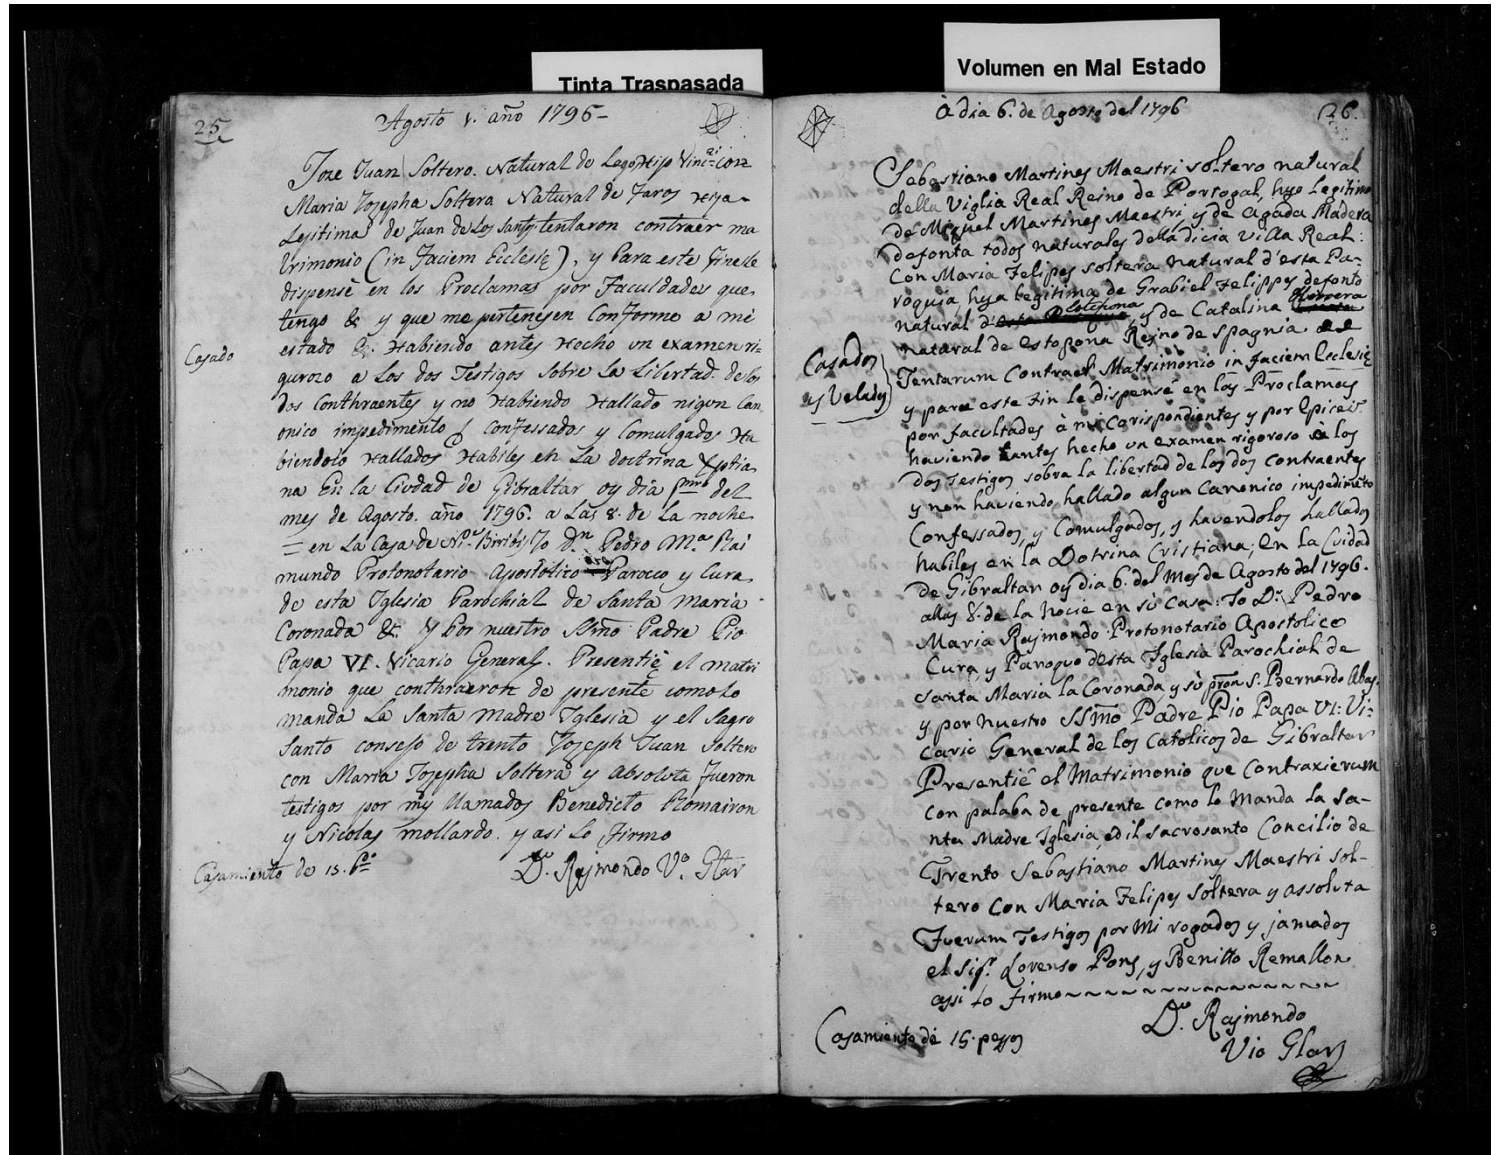 Tinta Traspasada
Volumen en Mal Estado
25
Agosto 1. año 1796
Joze Juan Soltero. Natural de
Maria Jozepha Soltera Natural de Faros Hija
Lejitima de Juan de Los Santos tentaron contraér ma
trimonio (in Faciem Ecclesię), y Para este fine le
dispensè en los Proclamas por Facultades que
tengo & y que me pertenesen Conforme a mi
estado &. Habiendo antes Hecho un examen ri=
gurozo a Los dos Testigos Sobre La Libertad de los
dos Conthraentes y no Habiendo Hallado nigun Can
onico impedimento Confessados y Comulgados Ha
biendolo Hallados Habiles en La doctrina Xptia
na En la Ciudad de Gibraltar oy dia pmo del
mes de Agosto. año 1796. a Las 8. de La noche
en La Casa de Yo Dn Pedro Ma Rai
mundo Protonotario Apostolico Parocco y Cura
de esta Iglesia Parochial de Santa Maria
Coronada &. Y Por nuestro SSmo Padre Pio
Papa VI. Vicario General. Presentiè el matri
monio que conthraeron de presente como lo
manda La Santa Madre Iglesia y el Sagro
Santo consejo de trento Jozeph Juan Soltero
con Maria Jozepha Soltera y Absoluta Fueron
testigos por my llamados Benedicto Romairon
y Nicolas mollardo. y asi Lo Firmo
Casado
Casamiento de 15. ps
Dn Rajmondo Vo. Glar
à dia 6. de Agosto del 1796
26.
Sebastiano Martines Maestri soltero natural
della Viglia Real Reino de Portogal, hijo Legitimo
de Miguel Martines Maestri, y de Agada Madera
defonta todos naturales della dicia Villa Real:
Con Maria Felipes soltera natural d'esta Pa-
roquia, hija legitima de Grabiel Felippes defonto
natural d' y de Catalina Herrera
natural de Estopona Rejno de Spagnia
Tentarum Contraer Matrimonio in faciem Ecclesię
y para este fin le dispensè en las Proclamas
por facultades à mi Corispondientes y por
haviendo antes hecho un examen rigoroso à los
dos Testigos sobra la libertad de los dos Contraentes
y non haviendo hallado algun Canonico impedimto
Confessados, y Comulgados, y havendolos hallados
habiles en la Dotrina Cristiana; En la Cividad
de Gibraltar oy dia 6. del Mes de Agosto del 1796.
allas 8. de la Nocie en sù Casa: Io Dn. Pedro
Maria Rajmondo Protonotario Apostolico
Cura, y Paroquo desta Iglesia Parochial de
Santa Maria la Coronada, y sù S. Bernardo Abas
y por nuestro SSmo Padre Pio Papa VI: Vi-
cario General de los Catolicos de Gibraltar
Presentiè el Matrimonio que Contraxierum
con palaba de presente como lo Manda la Sa-
nta Madre Iglesia, ed il Sacrosanto Concilio de
Trento Sebastiano Martines Maestri Sol-
tero Con Maria Felipes Soltera y assoluta
Fuerum Testigos por Mi rogados y jamados
el Sigr. Lorenso Pons, y Benitto Remallon
assi lo firmo
Casados
y Velados
Casamiento de 15. pessos
Dn. Rajmondo
Vio Glar